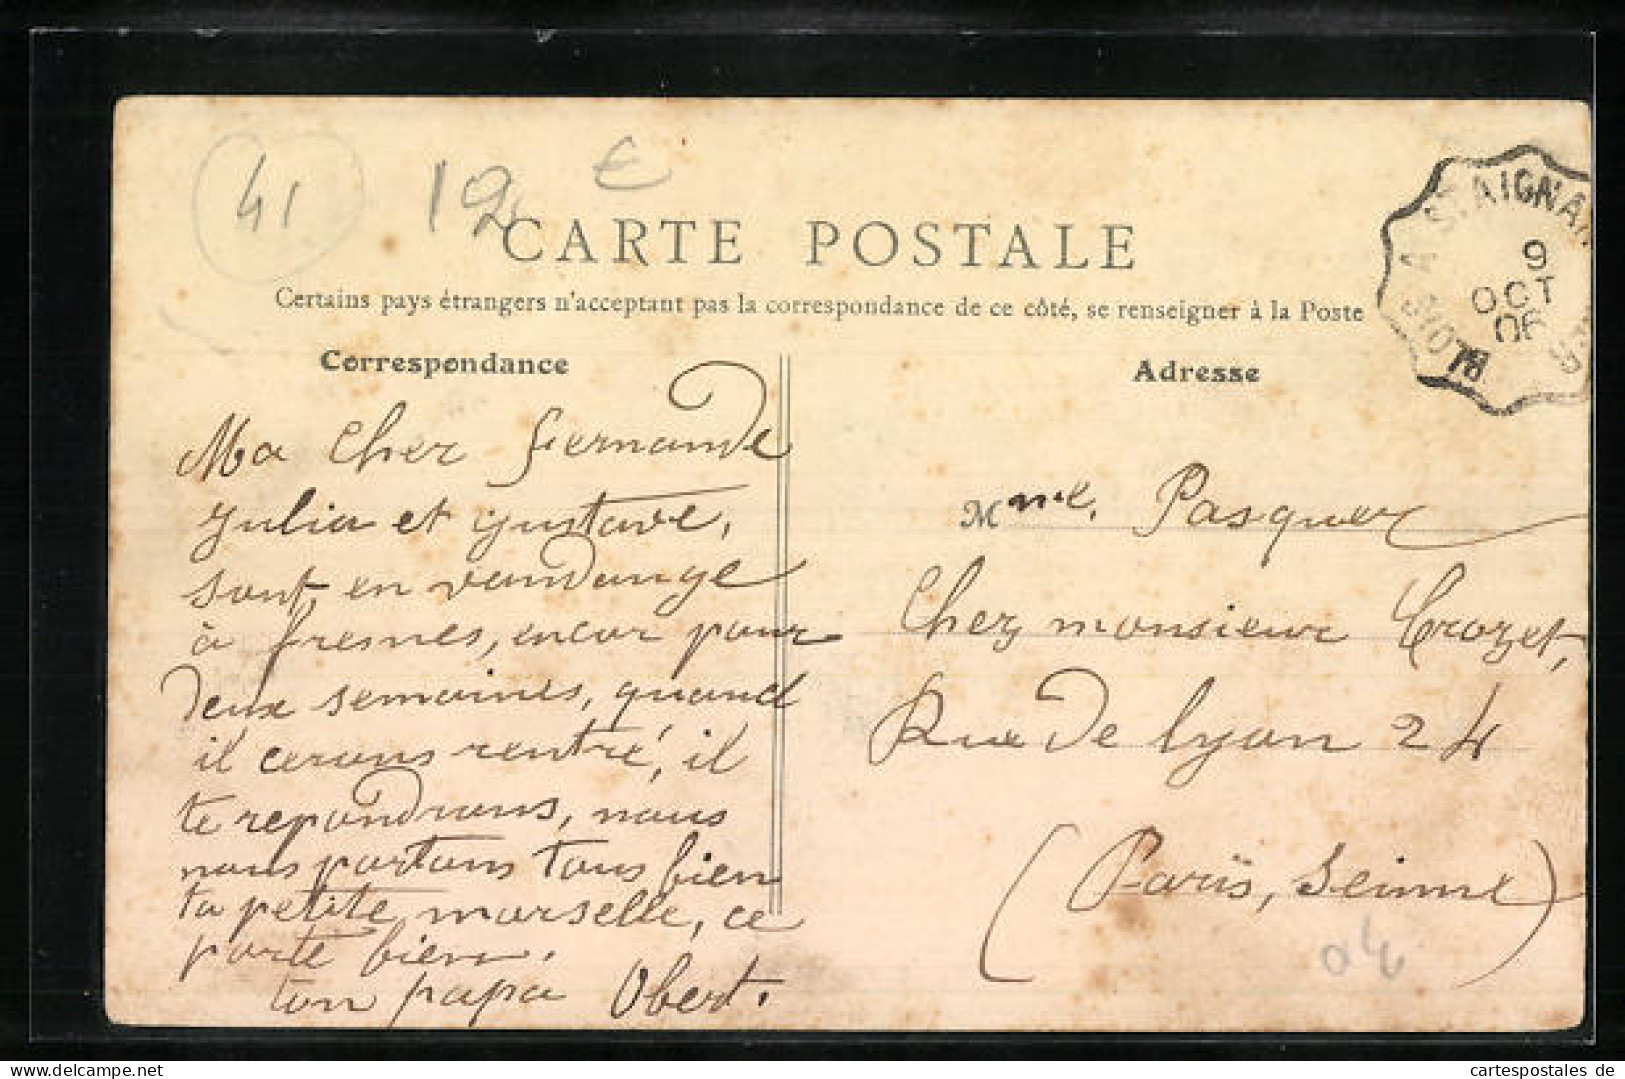 41
12 €
CARTE POSTALE
Certains pays étrangers n'acceptant pas la correspondance de ce côté, se renseigner à la Poste
Correspondance
Ma Cher fernande
julia et gustave,
sont en vandange
à fresnes, encor pour
deux semaines, quand
il cerons rentré, il
te repondrons, nous
nous portons tous bien
ta petite marselle, ce
porte bien,
ton papa Obert.
Adresse
Mme. Pasquer
Chez monsieur Crozet,
Rue De lyon 24
(Paris, Seinne)
04
BLOIS A ST AIGNAN
9
OCT
06
cartespostales de